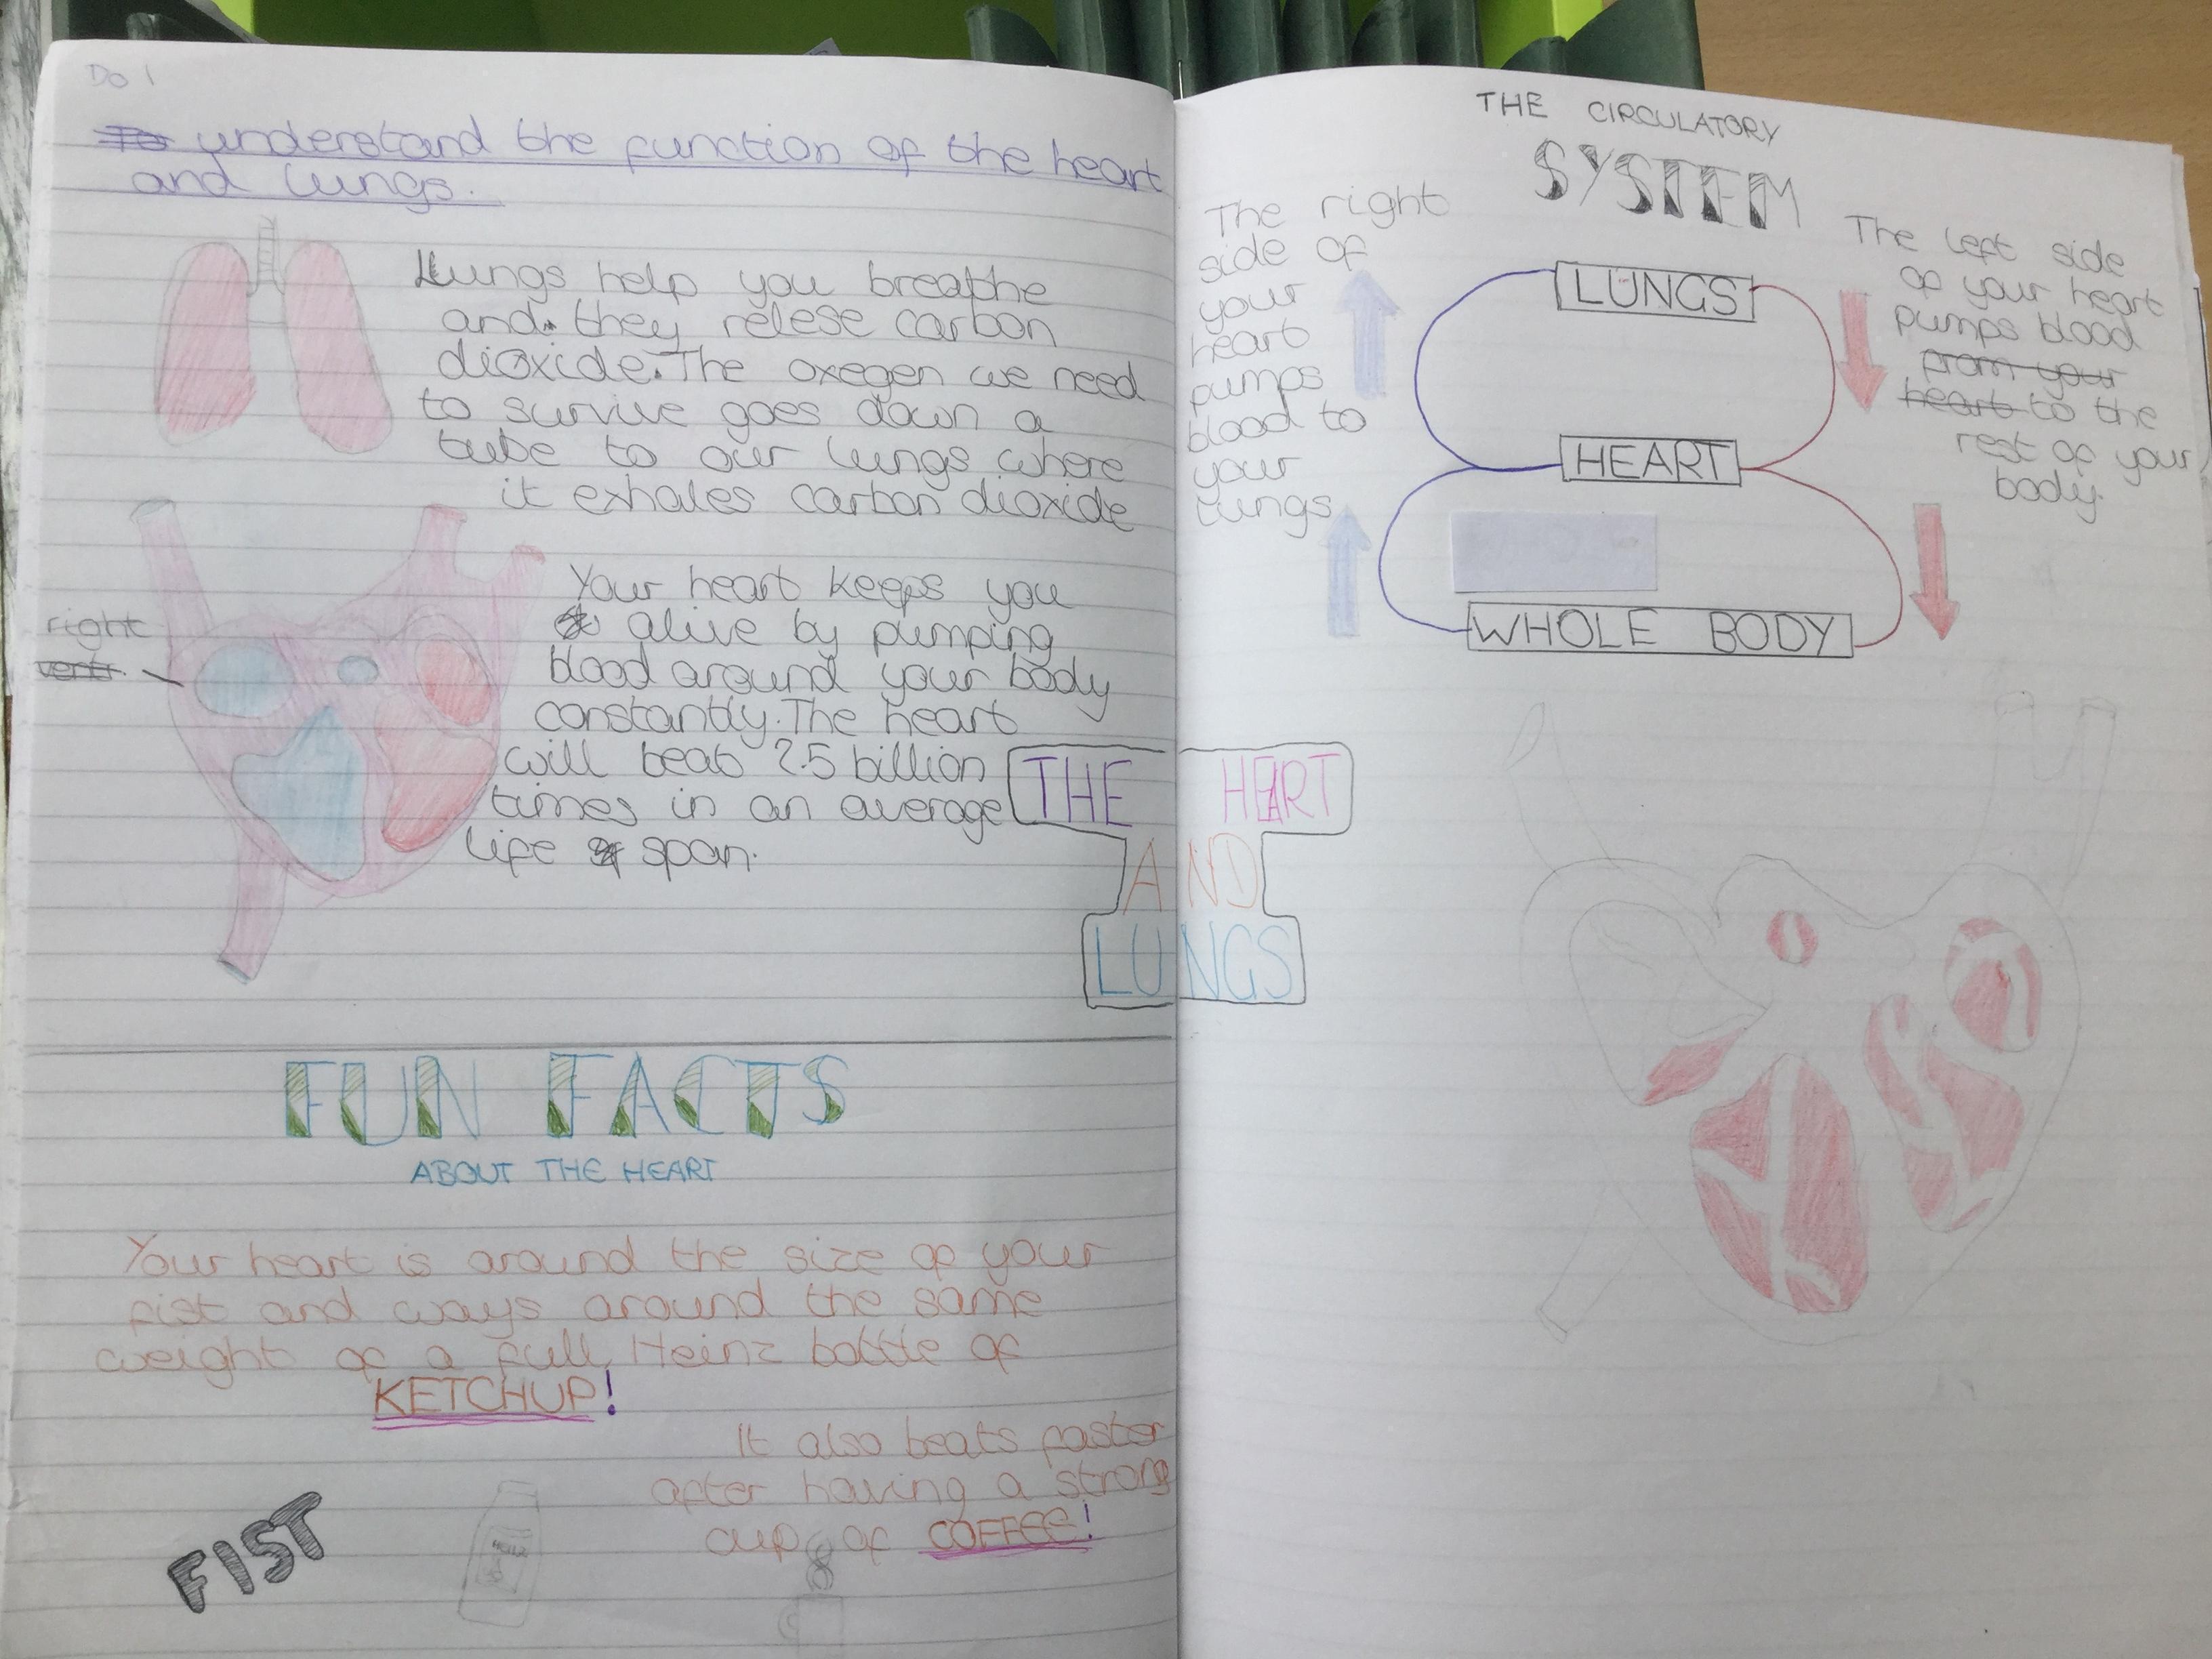 Do I
To understand the function of the heart
and lungs.
Lungs help you breathe
and they relese carbon
dioxide. The oxegen we need
to survive goes down a
tube to our lungs where
it exhales carbon dioxide
Your heart keeps you
alive by pumping
blood around your body
constantly. The heart
will beat 2.5 billion
times in an average
life span.
right
ventr.
THE HEART
AND
LUNGS
FUN FACTS
ABOUT THE HEART
Your heart is around the size of your
fist and ways around the same
weight of a full Heinz bottle of
KETCHUP!
It also beats faster
after having a strong
cup of COFFEE!
FIST
HEINZ
THE CIRCULATORY
SYSTEM
The right
side of
your
heart
pumps
blood to
your
lungs
LUNGS
HEART
WHOLE BODY
The left side
of your heart
pumps blood
from your
heart to the
rest of your
body.